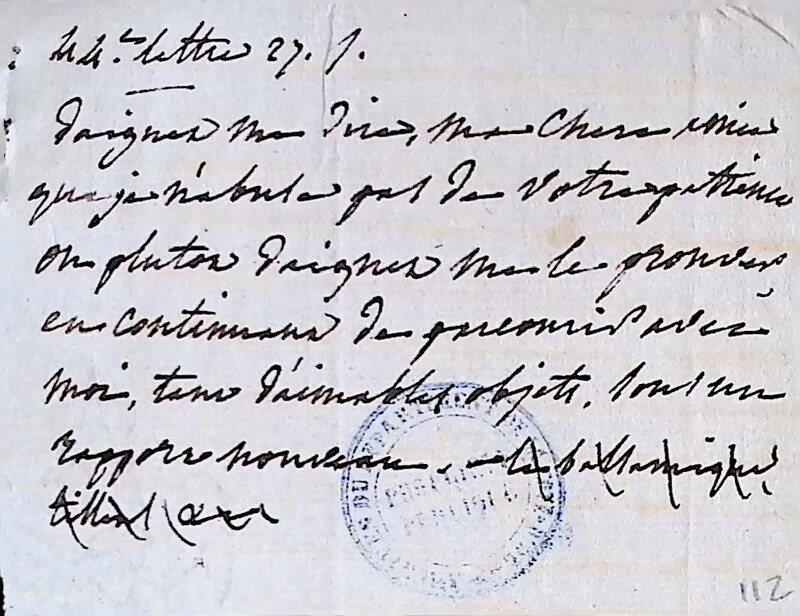 44.e lettre 27. f.
Daignez me dire, ma chere amie
que je n'abuse pas de votre patience
ou plutot daignez me le prouver
en continuant de parcourir avec
moi, tant d'aimables objets, sous un
rapport nouveau.
112